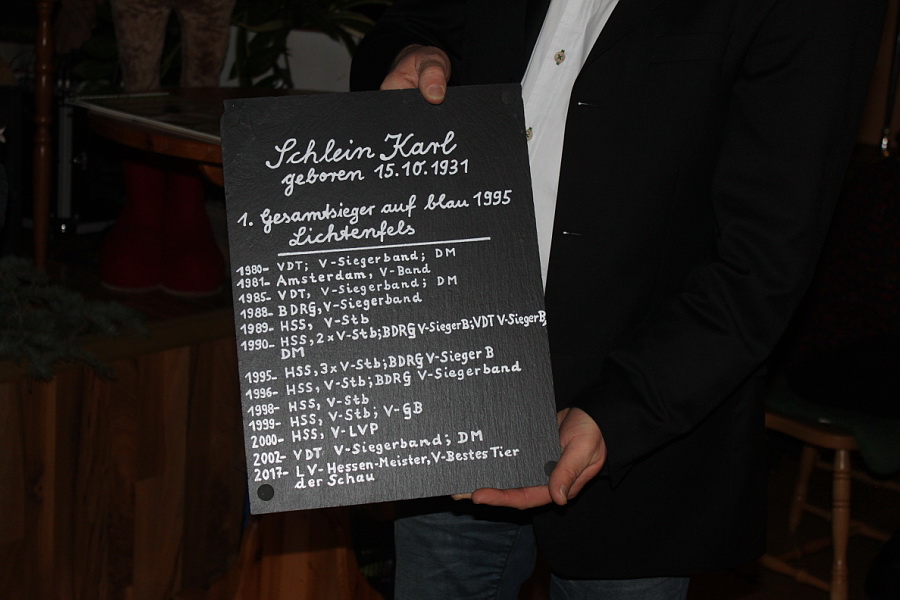 Schlein Karl
geboren 15.10.1931
1. Gesamtsieger auf blau 1995
Lichtenfels
1980- VDT; V-Siegerband; DM
1981- Amsterdam, V-Band
1985- VDT, V-Siegerband; DM
1988- BDRG, V-Siegerband
1989- HSS, V-Stb
1990- HSS, 2xV-Stb; BDRG V-SiegerB; VDT V-SiegerB;
DM
1995- HSS, 3xV-Stb; BDRG V-Sieger B
1996- HSS, V-Stb; BDRG V-Siegerband
1998- HSS, V-Stb
1999- HSS, V-Stb; V-GB
2000- HSS, V-LVP
2002- VDT V-Siegerband; DM
2017- LV-Hessen-Meister, V-Bestes Tier
der Schau